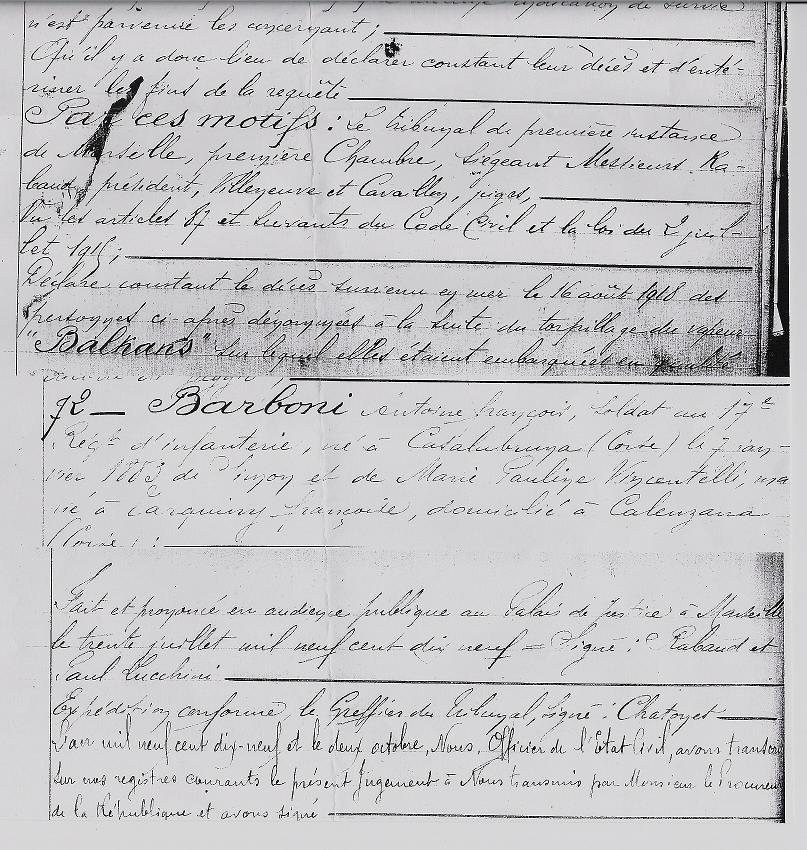 n'est parvenue les concernant ;
Qu'il y a donc lieu de déclarer constant leur décès et d'enté-
riner les fins de la requête
Par ces motifs : Le tribunal de première instance
de Marseille, première Chambre, siégeant Messieurs Ra-
baud président, Villeneuve et Cavaillon, juges,
Vu les articles 87 et suivants du Code Civil et la loi du 2 juil-
let 1915 ;
Déclare constant le décès survenu en mer le 16 août 1918 des
personnes ci-après dénommées à la suite du torpillage du vapeur
"Balkans" sur lequel elles étaient embarquées en qualité
72 — Barboni Antoine françois, soldat au 17e
Régt d'infanterie, né à Casalabriva (Corse) le 7 jan-
vier 1883 de Simon et de Marie Pauline Vincentelli, ma
rié à françoise, domicilié à Calenzana
(Corse) ;
Fait et prononcé en audience publique au Palais de Justice à Marseille
le trente juillet mil neuf cent dix neuf = Signé : Rabaud et
Paul Lucchini
Expédition conforme, le Greffier du Tribunal, signé : Chatonet
L'an mil neuf cent dix-neuf et le deux octobre, Nous, Officier de l'Etat Civil, avons transcri
sur nos registres courants le présent Jugement à Nous transmis par Monsieur le Procureu
de la République et avons signé